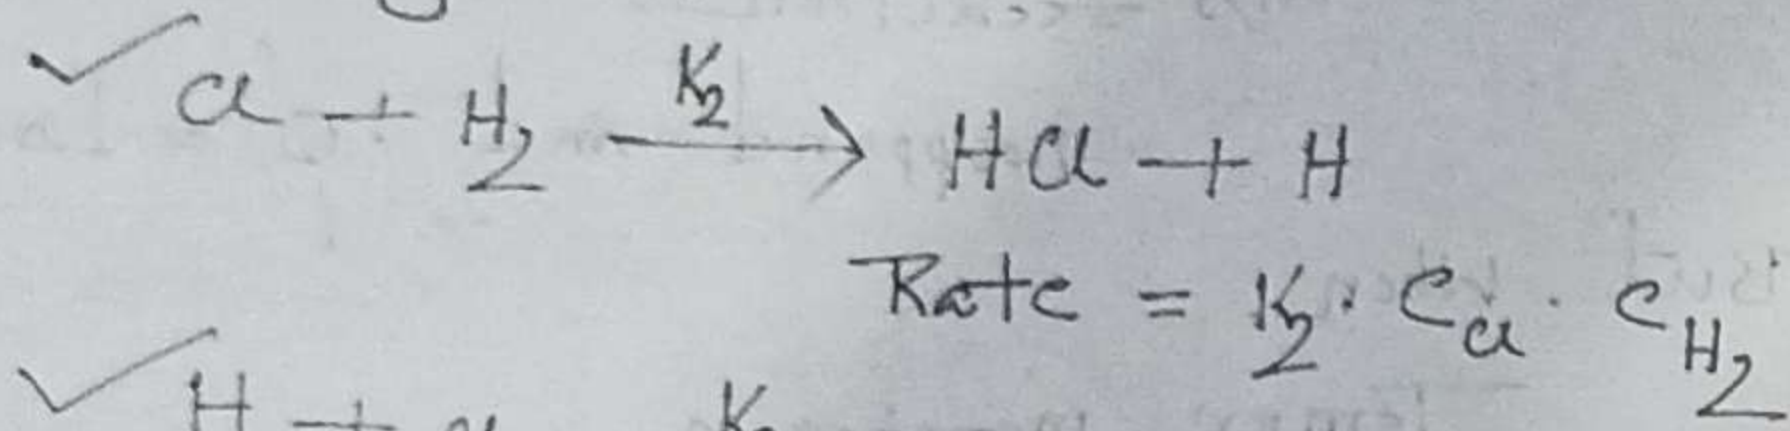 ✓ Cl + H₂ —K₂→ HCl + H
Rate = K₂ · C_Cl · C_H₂
✓ H +